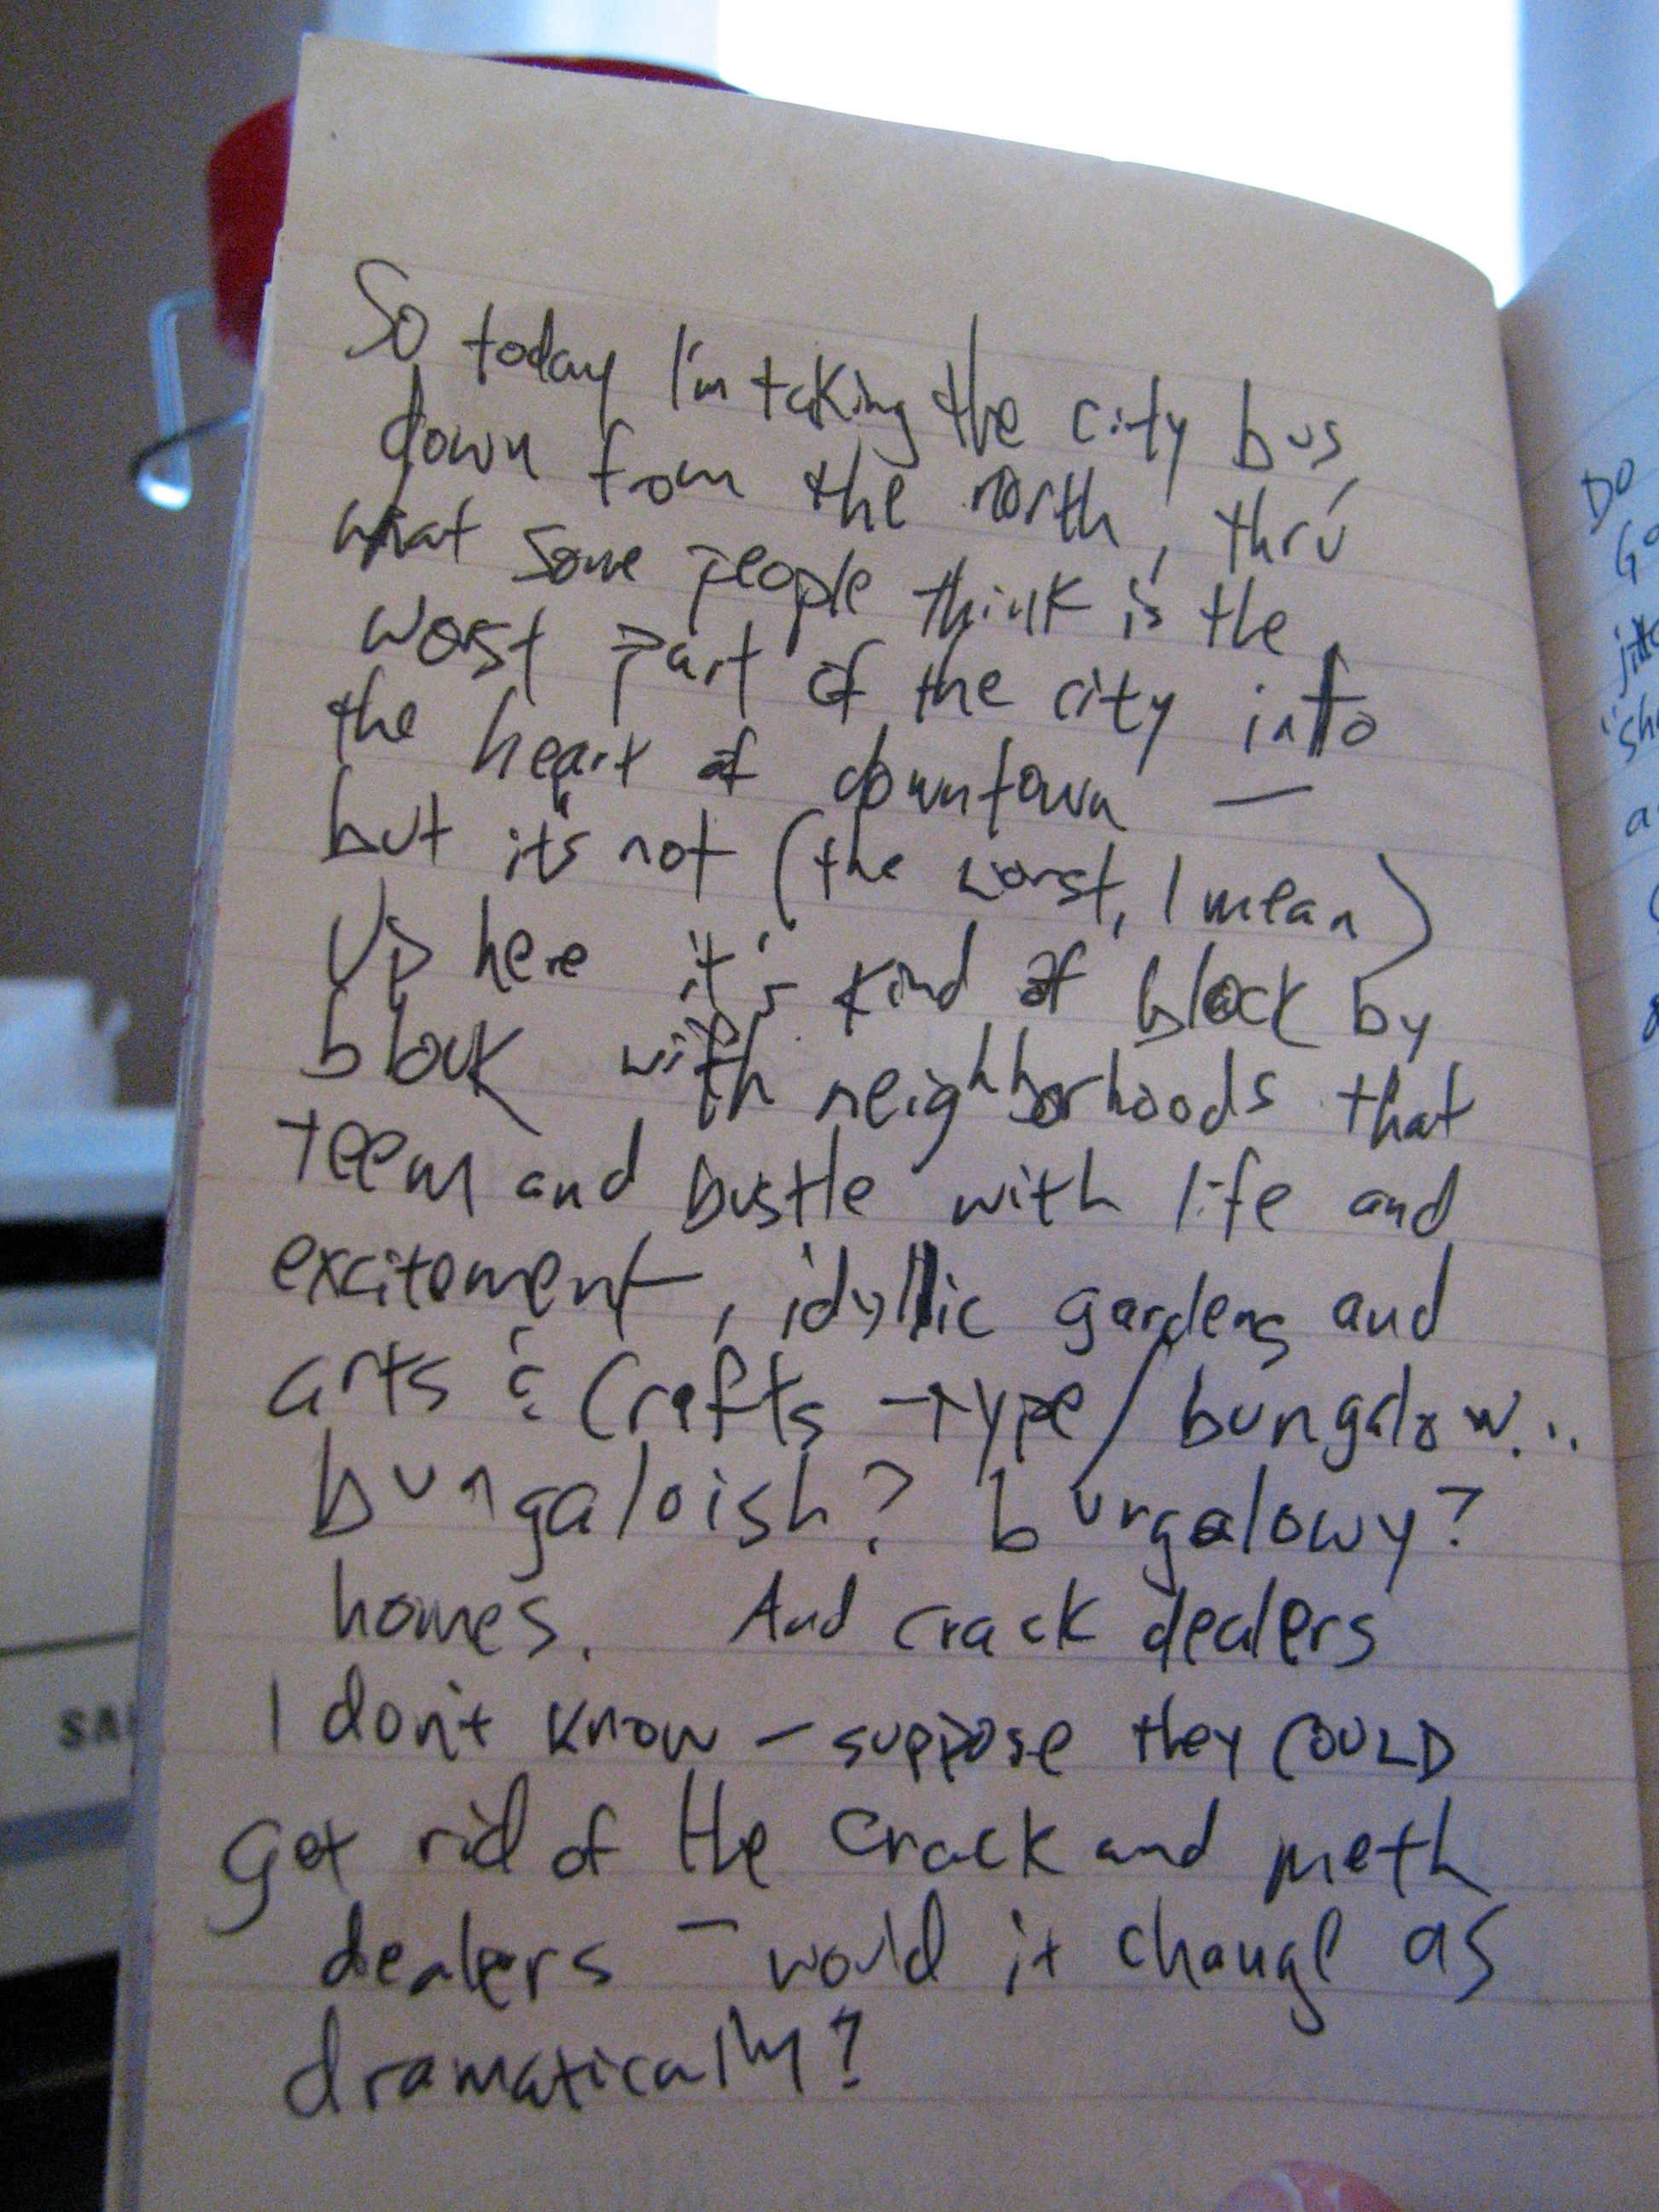 So today I'm taking the city bus,
down fom the north, thru
what some people think is the
worst part of the city into
the heart of downtown —
but it's not (the worst, I mean)
Up here it's kind of block by
block with neighborhoods that
teem and bustle with life and
excitement, idyllic gardens and
arts & Crafts -type/bungalow...
bungaloish? bungalowy?
homes. And crack dealers
I don't know - suppose they COULD
get rid of the crack and meth
dealers - would it change as
dramatically?
Do
SA